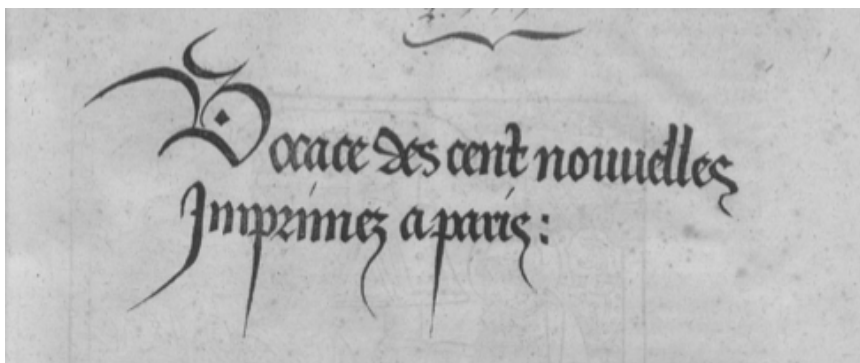 Bocace des cent nouuelles
Imprimez a paris: